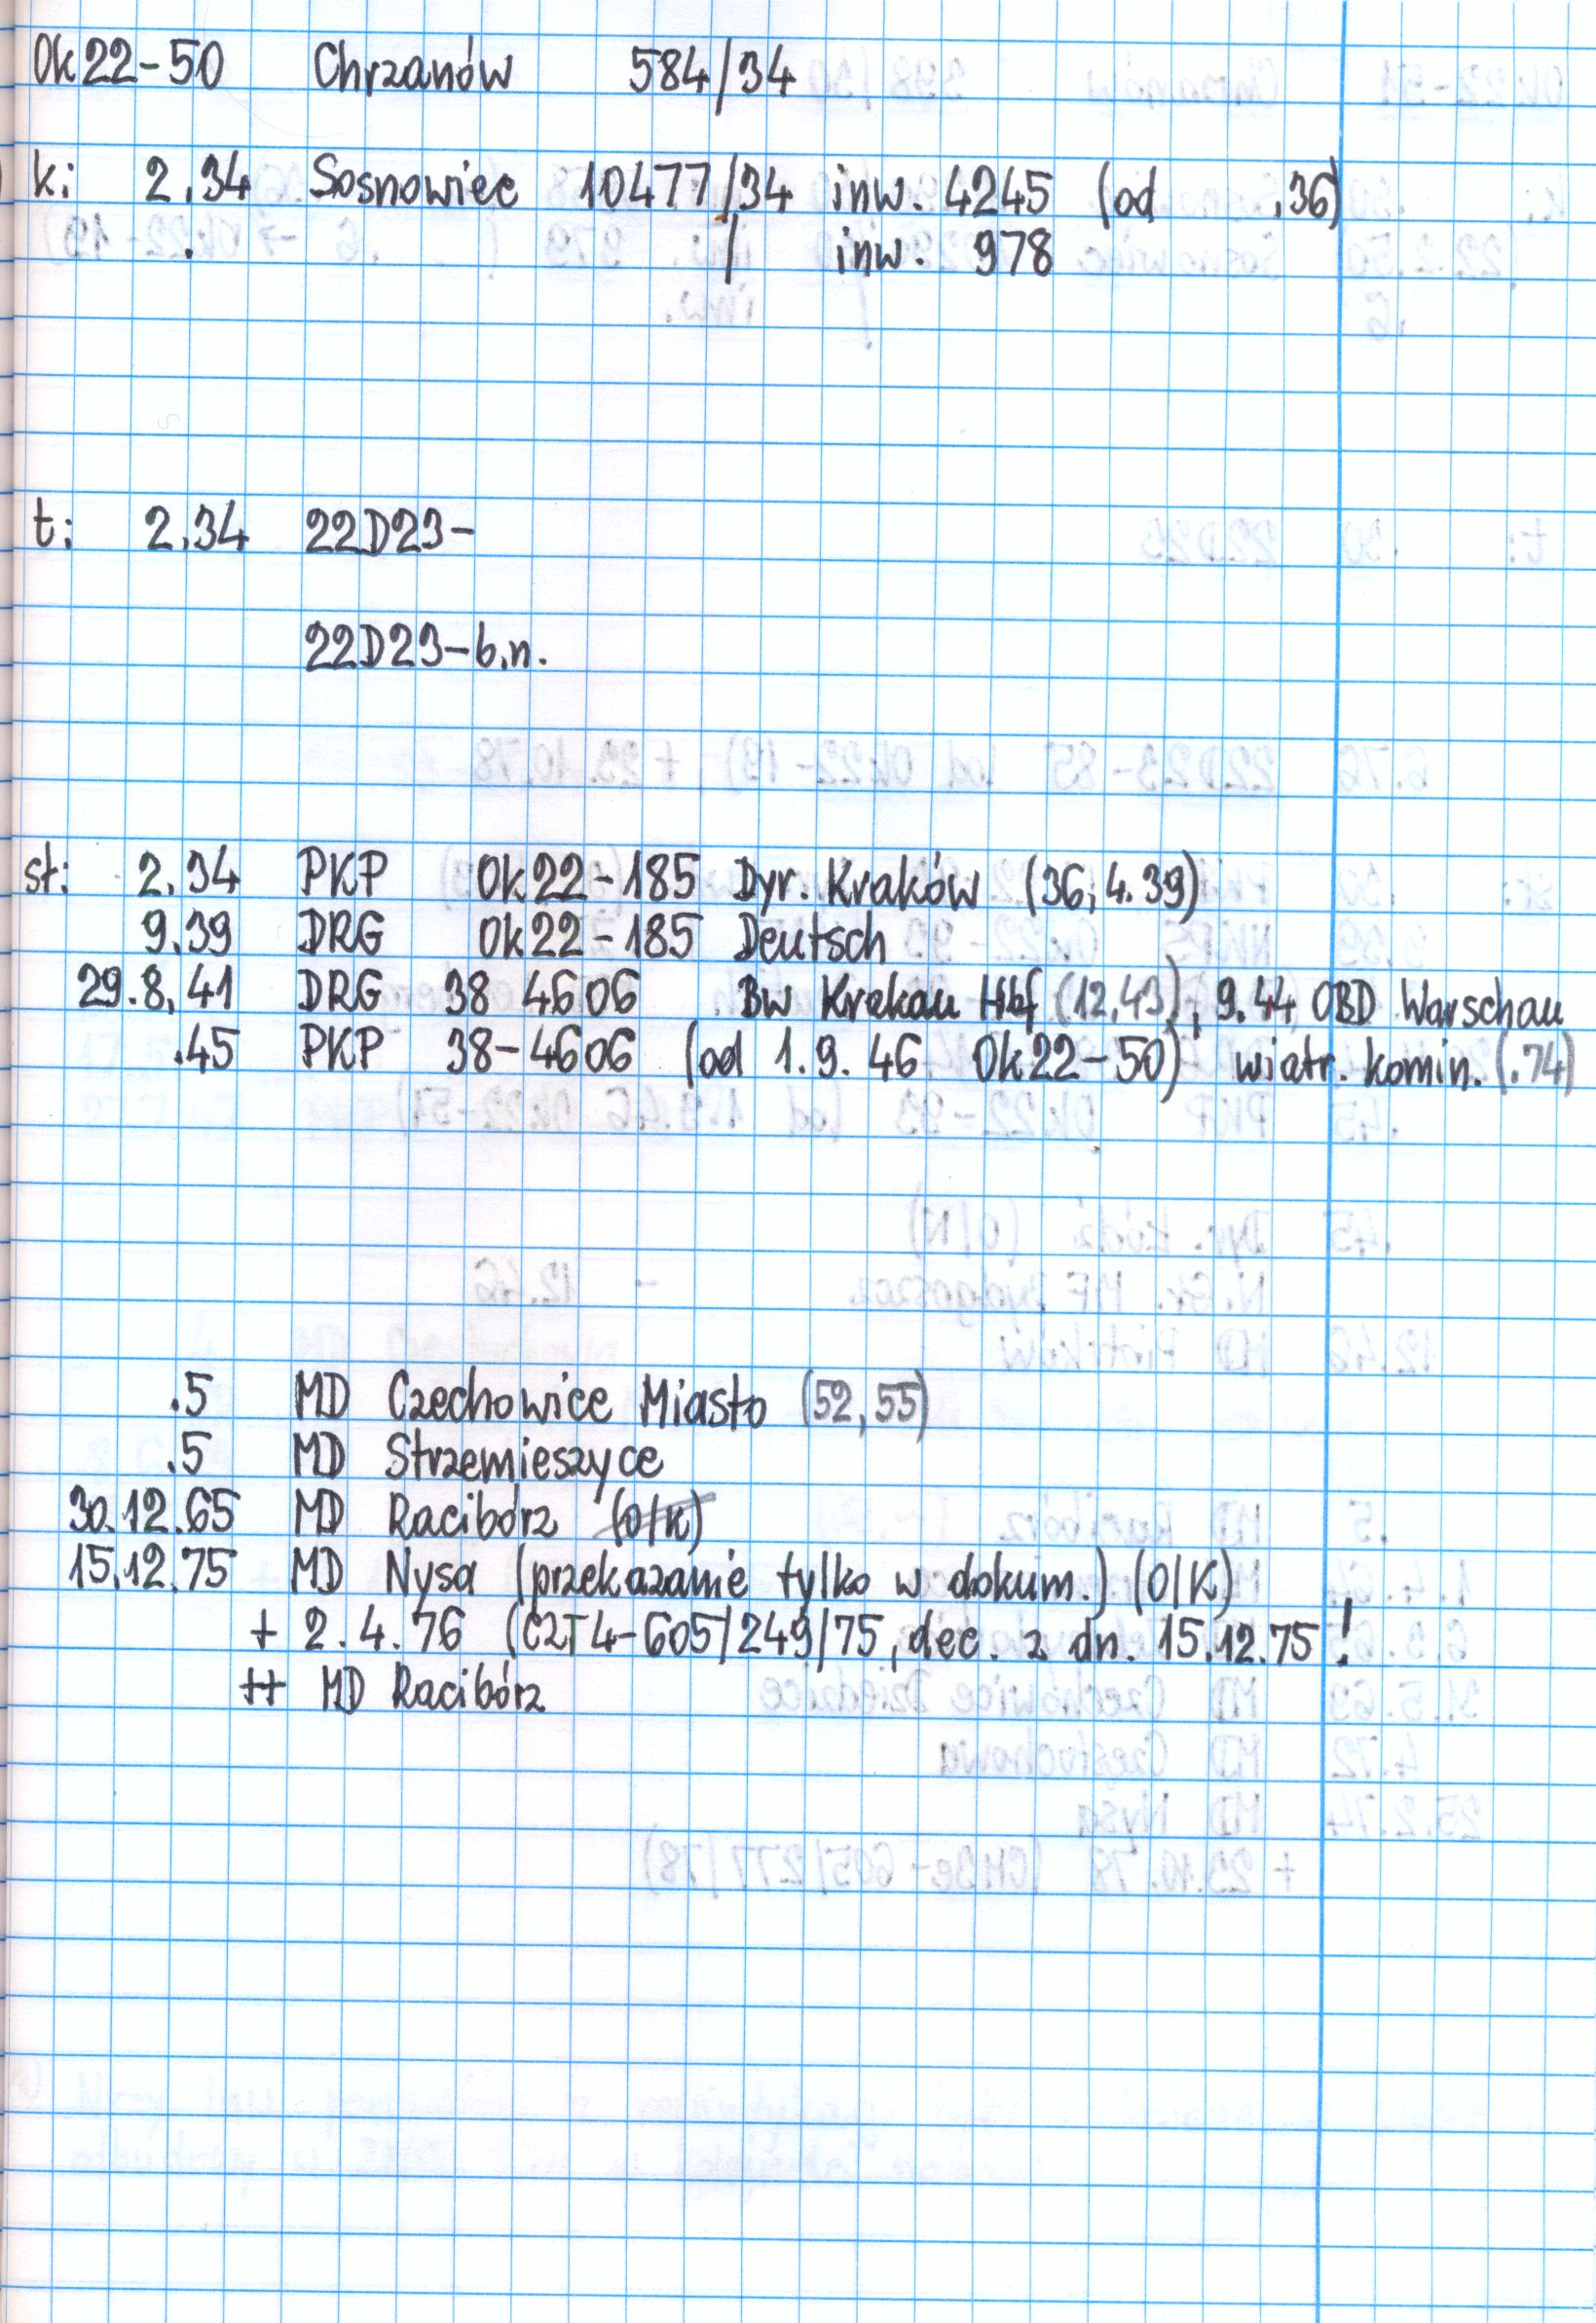 Ok22-50 Chrzanów 584/34
k: 2.34 Sosnowiec 10477/34 inw. 4245 (od .36)
. / inw. 978
t: 2.34 22D23-
22D23-b.n.
st: 2.34 PKP Ok22-185 Dyr. Kraków (36, 4.39)
9.39 DRG Ok22-185 Deutsch
29.8.41 DRG 38 4606 Bw Krakau Hbf (12.43), 9.44 OBD Warschau
.45 PKP 38-4606 (od 1.9.46 Ok22-50) wiatr. komin. (.74)
.5 MD Czechowice Miasto (52, 55)
.5 MD Strzemieszyce
30.12.65 MD Racibórz (O/K)
15.12.75 MD Nysa (przekazanie tylko w dokum.) (O/K)
+ 2.4.76 (CZT4-605/249/75, dec. z dn. 15.12.75!
++ MD Racibórz